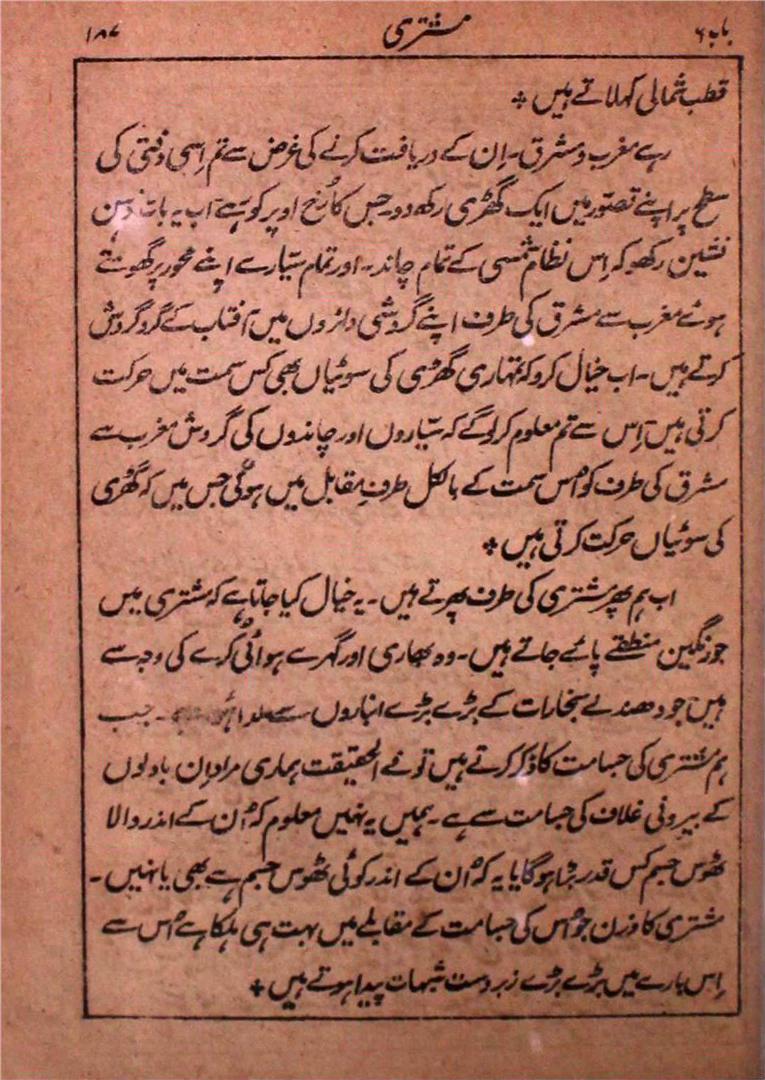 باب ۶ مشتری ۱۸۷
قطب شمالی کہلاتے ہیں *
رہے مغرب و مشرق۔ اِن کے دریافت کرنے کی غرض سے تم اِسی دفتی کی
سطح پر اپنے تصوّر میں ایک گھڑی رکھ دو۔ جس کا رُخ اوپر کو ہے۔ اب یہ بات ذہن
نشین رکھو کہ اِس نظام شمسی کے تمام چاند۔ اور تمام سیّارے اپنے محور پر گھومتے
ہوئے مغرب سے مشرق کی طرف اپنے گردشی دائروں میں آفتاب کے گرد گردش
کرتے ہیں۔ اب خیال کرو کہ تمہاری گھڑی کی سوئیاں بھی کس سمت میں حرکت
کرتی ہیں۔ اِس سے تم معلوم کر لو گے کہ سیّاروں اور چاندوں کی گردش مغرب سے
مشرق کی طرف کو اُس سمت کے بالکل طرفِ مقابل میں ہوگی جس میں کہ گھڑی
کی سوئیاں حرکت کرتی ہیں *
اب ہم پھر مشتری کی طرف پھرتے ہیں۔ یہ خیال کیا جاتا ہے کہ مشتری میں
جو رنگین منطقے پائے جاتے ہیں۔ وہ بھاری اور گہرے ہوائی کُرے کی وجہ سے
ہیں جو دھندلے بخارات کے بڑے بڑے انباروں سے ۔ جب
ہم مشتری کی جسامت کا ذکر کرتے ہیں تو فے الحقیقت ہماری مراد اِن بادلوں
کے بیرونی غلاف کی جسامت سے ہے۔ ہمیں یہ نہیں معلوم کہ اُن کے اندر والا
ٹھوس جسم کس قدر بڑا ہوگا یا یہ کہ اُن کے اندر کوئی ٹھوس جسم ہے بھی یا نہیں۔
مشتری کا وزن جو اُس کی جسامت کے مقابلے میں بہت ہی ہلکا ہے اُس سے
اِس بارے میں بڑے بڑے زبردست شبہات پیدا ہوتے ہیں *